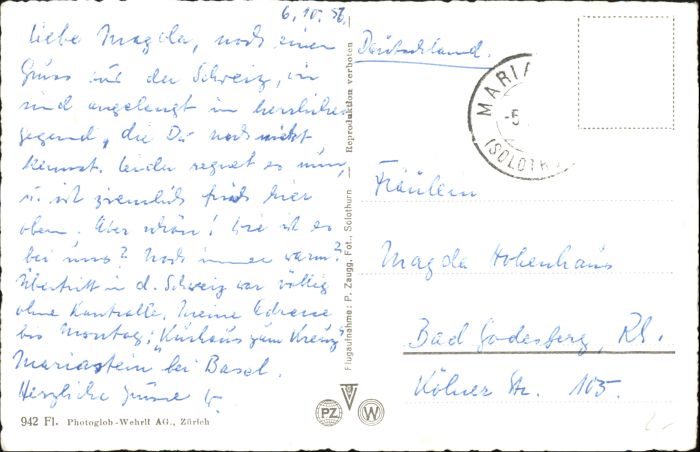 6.10.56.
Liebe Magda, noch einen
Gruss aus der Schweiz, wir
sind angelangt in herrlicher
Gegend, die Du noch nicht
kennst. Leider regnet es nun,
u. ist ziemlich frisch hier
oben. Aber schön! Wie ist es
bei uns? Noch immer warm?
Übertritt in d. Schweiz war völlig
ohne Kontrolle. Meine Adresse
bis Montag: "Kurhaus zum Kreuz"
Mariastein bei Basel.
Herzliche Grüsse
942 Fl. Photoglob-Wehrli AG., Zürich
Flugaufnahme: P. Zaugg, Fot., Solothurn — Reproduktion verboten
PZ
W
Deutschland.
MARIA
-5.
(SOLOTH
Fräulein
Magda Hohenhaus
Bad Godesberg, Rh.
Kölner Str. 105.